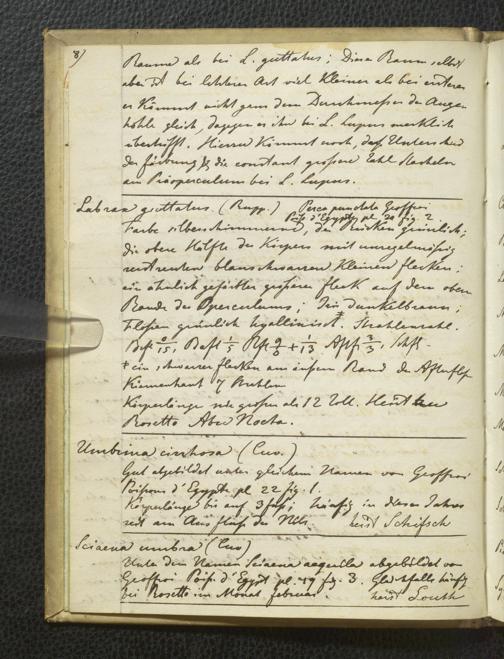 8)
Raume als bei L. guttatus; Diese Raum selbst
aber ist bei letzterer Art viel kleiner als bei ersterer
er kommt nicht ganz dem Durchmesser der Augen
höhle gleich, dagegen er ihn bei L. Lupus merklich
übertrifft. Hierzu kommt noch, daß Unterschied
der färbung & die constant grössere Zahl Stacheln
am Präoperculum bei L. Lupus.
Labrax guttatus. (Rupp.) Perca punctata Geoffroi
Pois d'Egypte, pl. 20 fig. 2
Farbe silberschimmernd, der Rücken grünlich;
die obere Hälfte des Körpers mit unregelmässig
zerstreuten blauschwarzen kleinen flecken;
ein ähnlich gefärbter grösserer fleck auf dem obern
Rande des Operculums; Iris dunkelbraun;
Flossen grünlich Strahlenzahl.
* ein schwarzer flecken am äusern Rand der Afterflosse
Kiemenhaut 7 Strahlen
Körperlänge nie grösser als 12 Zoll.
Rosetto Abu Nocta.
Umbrina cirrhosa (Cuv.)
Gut abgebildet unter gleichem Namen von Geoffroi
Poissons d'Egypte pl 22 fig. 1.
Körperlänge bis auf 3 fuß; häufig in dieser Jahres
zeit am Ausfluß des Nils heist Schifsch
Sciaena umbra (Cuv)
Unter dem Namen Sciaena aequilla abgebildet von
Geoffroi Pois. d'Egypt pl. 19 fig. 3. Gleichfalls häufig
bei Rosetto im Monat februar. heist Louth